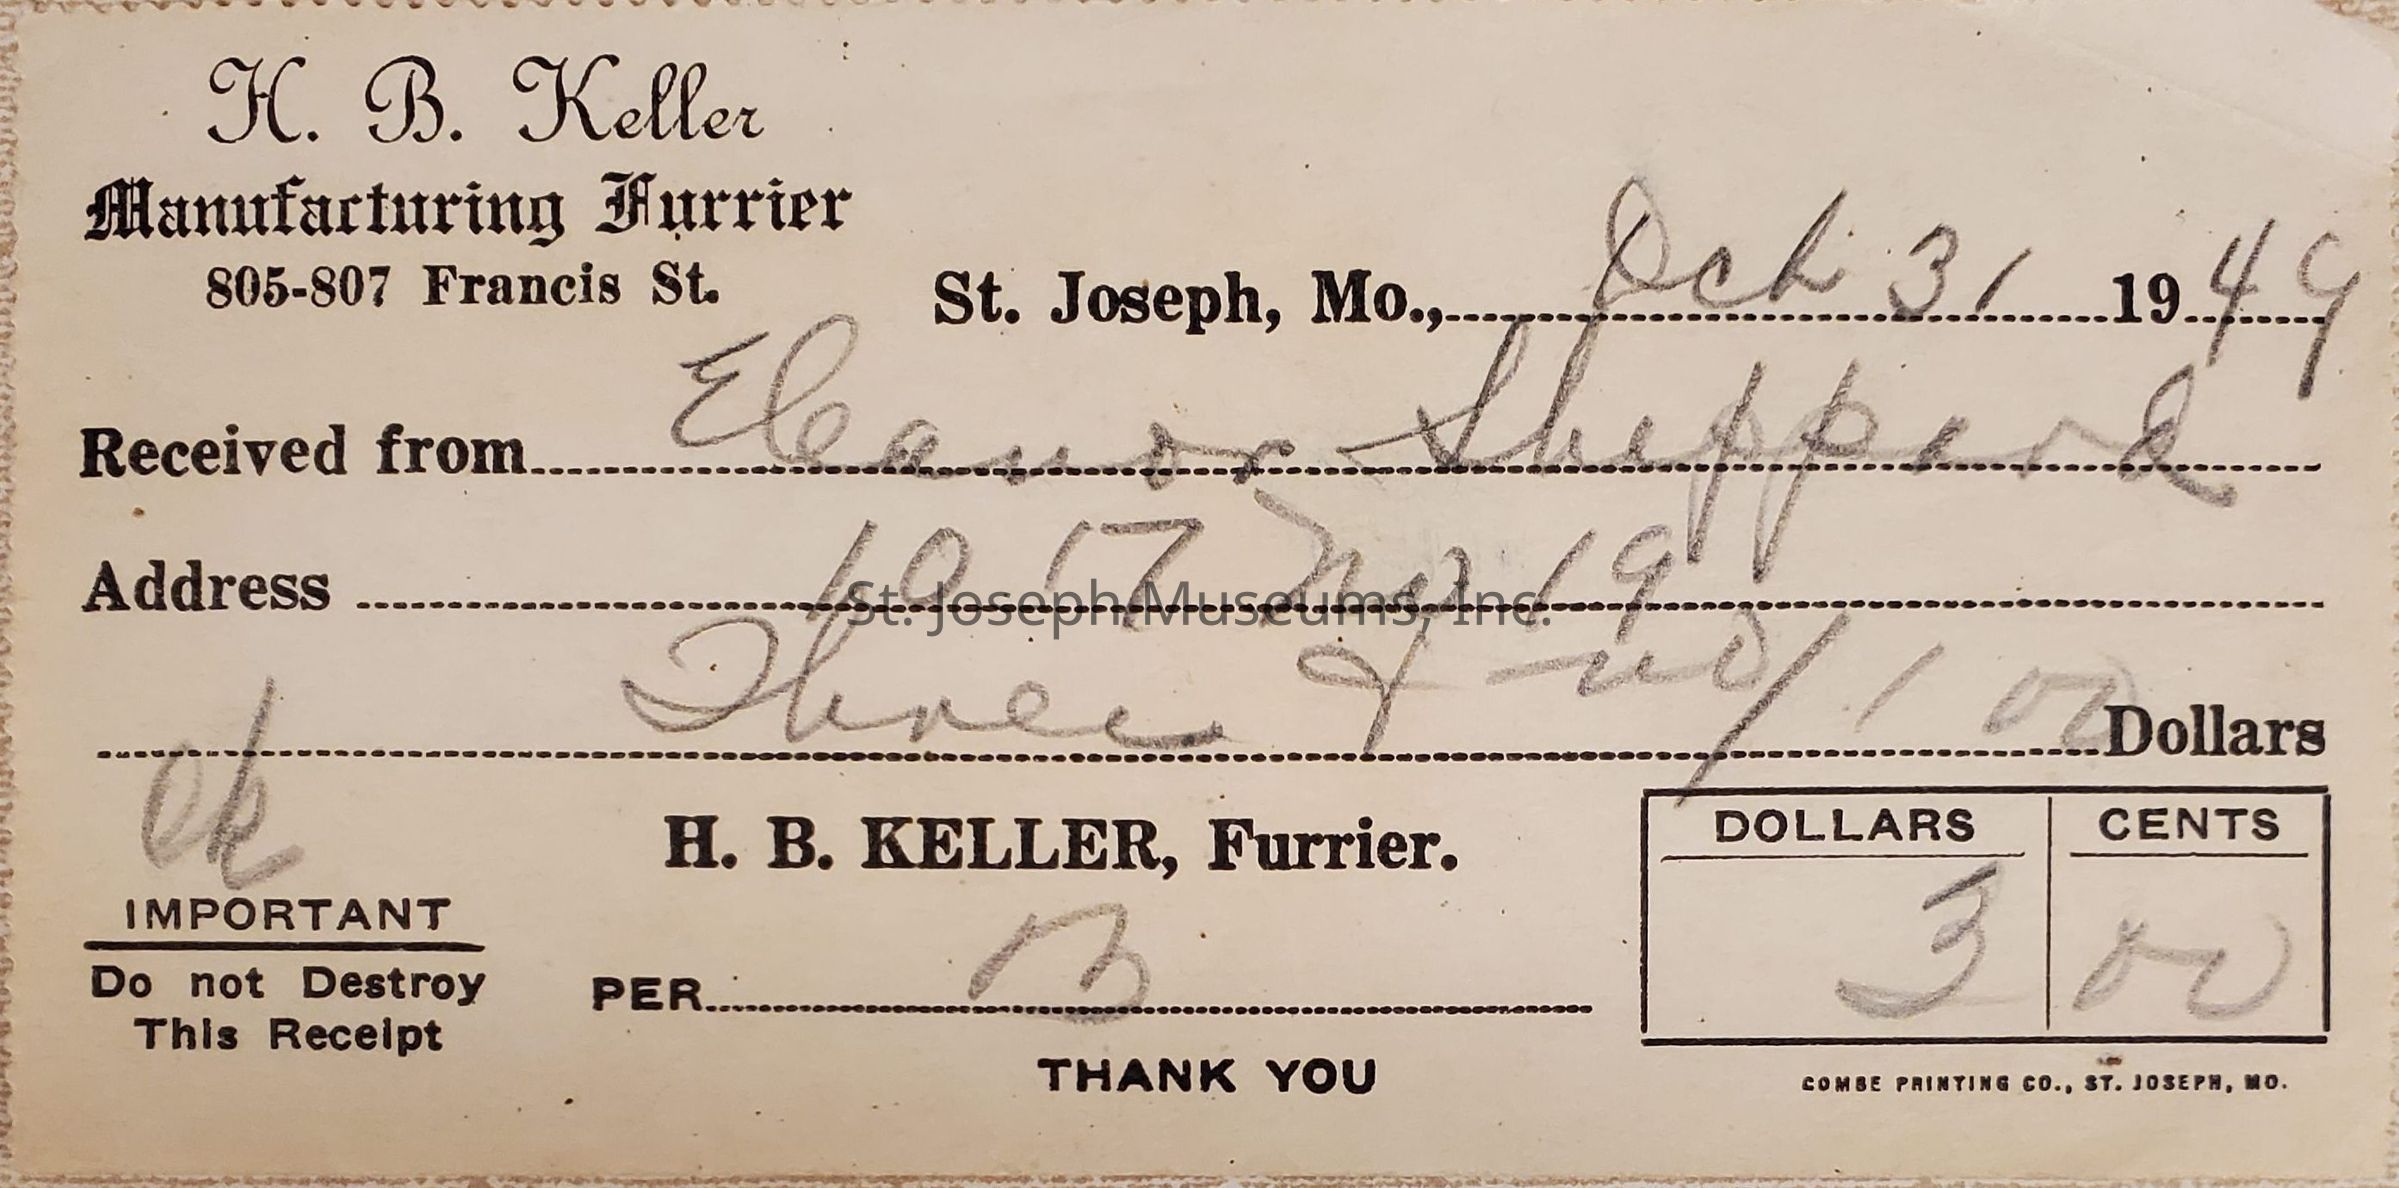 H. B. Keller
Manufacturing Furrier
805-807 Francis St.
St. Joseph, Mo., Oct 31 1949
Received from Eleanor Sheppard
Address 1017 No 19
St. Joseph Museums, Inc.
Three & no/100 Dollars
ok
H. B. KELLER, Furrier.
DOLLARS CENTS
3 00
IMPORTANT
Do not Destroy
This Receipt
PER B
THANK YOU
COMBE PRINTING CO., ST. JOSEPH, MO.